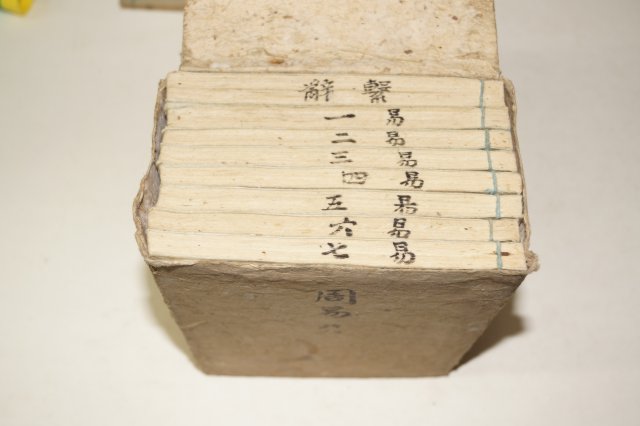 繫辭
易一
易二
易三
易四
易五
易六
易七
周易